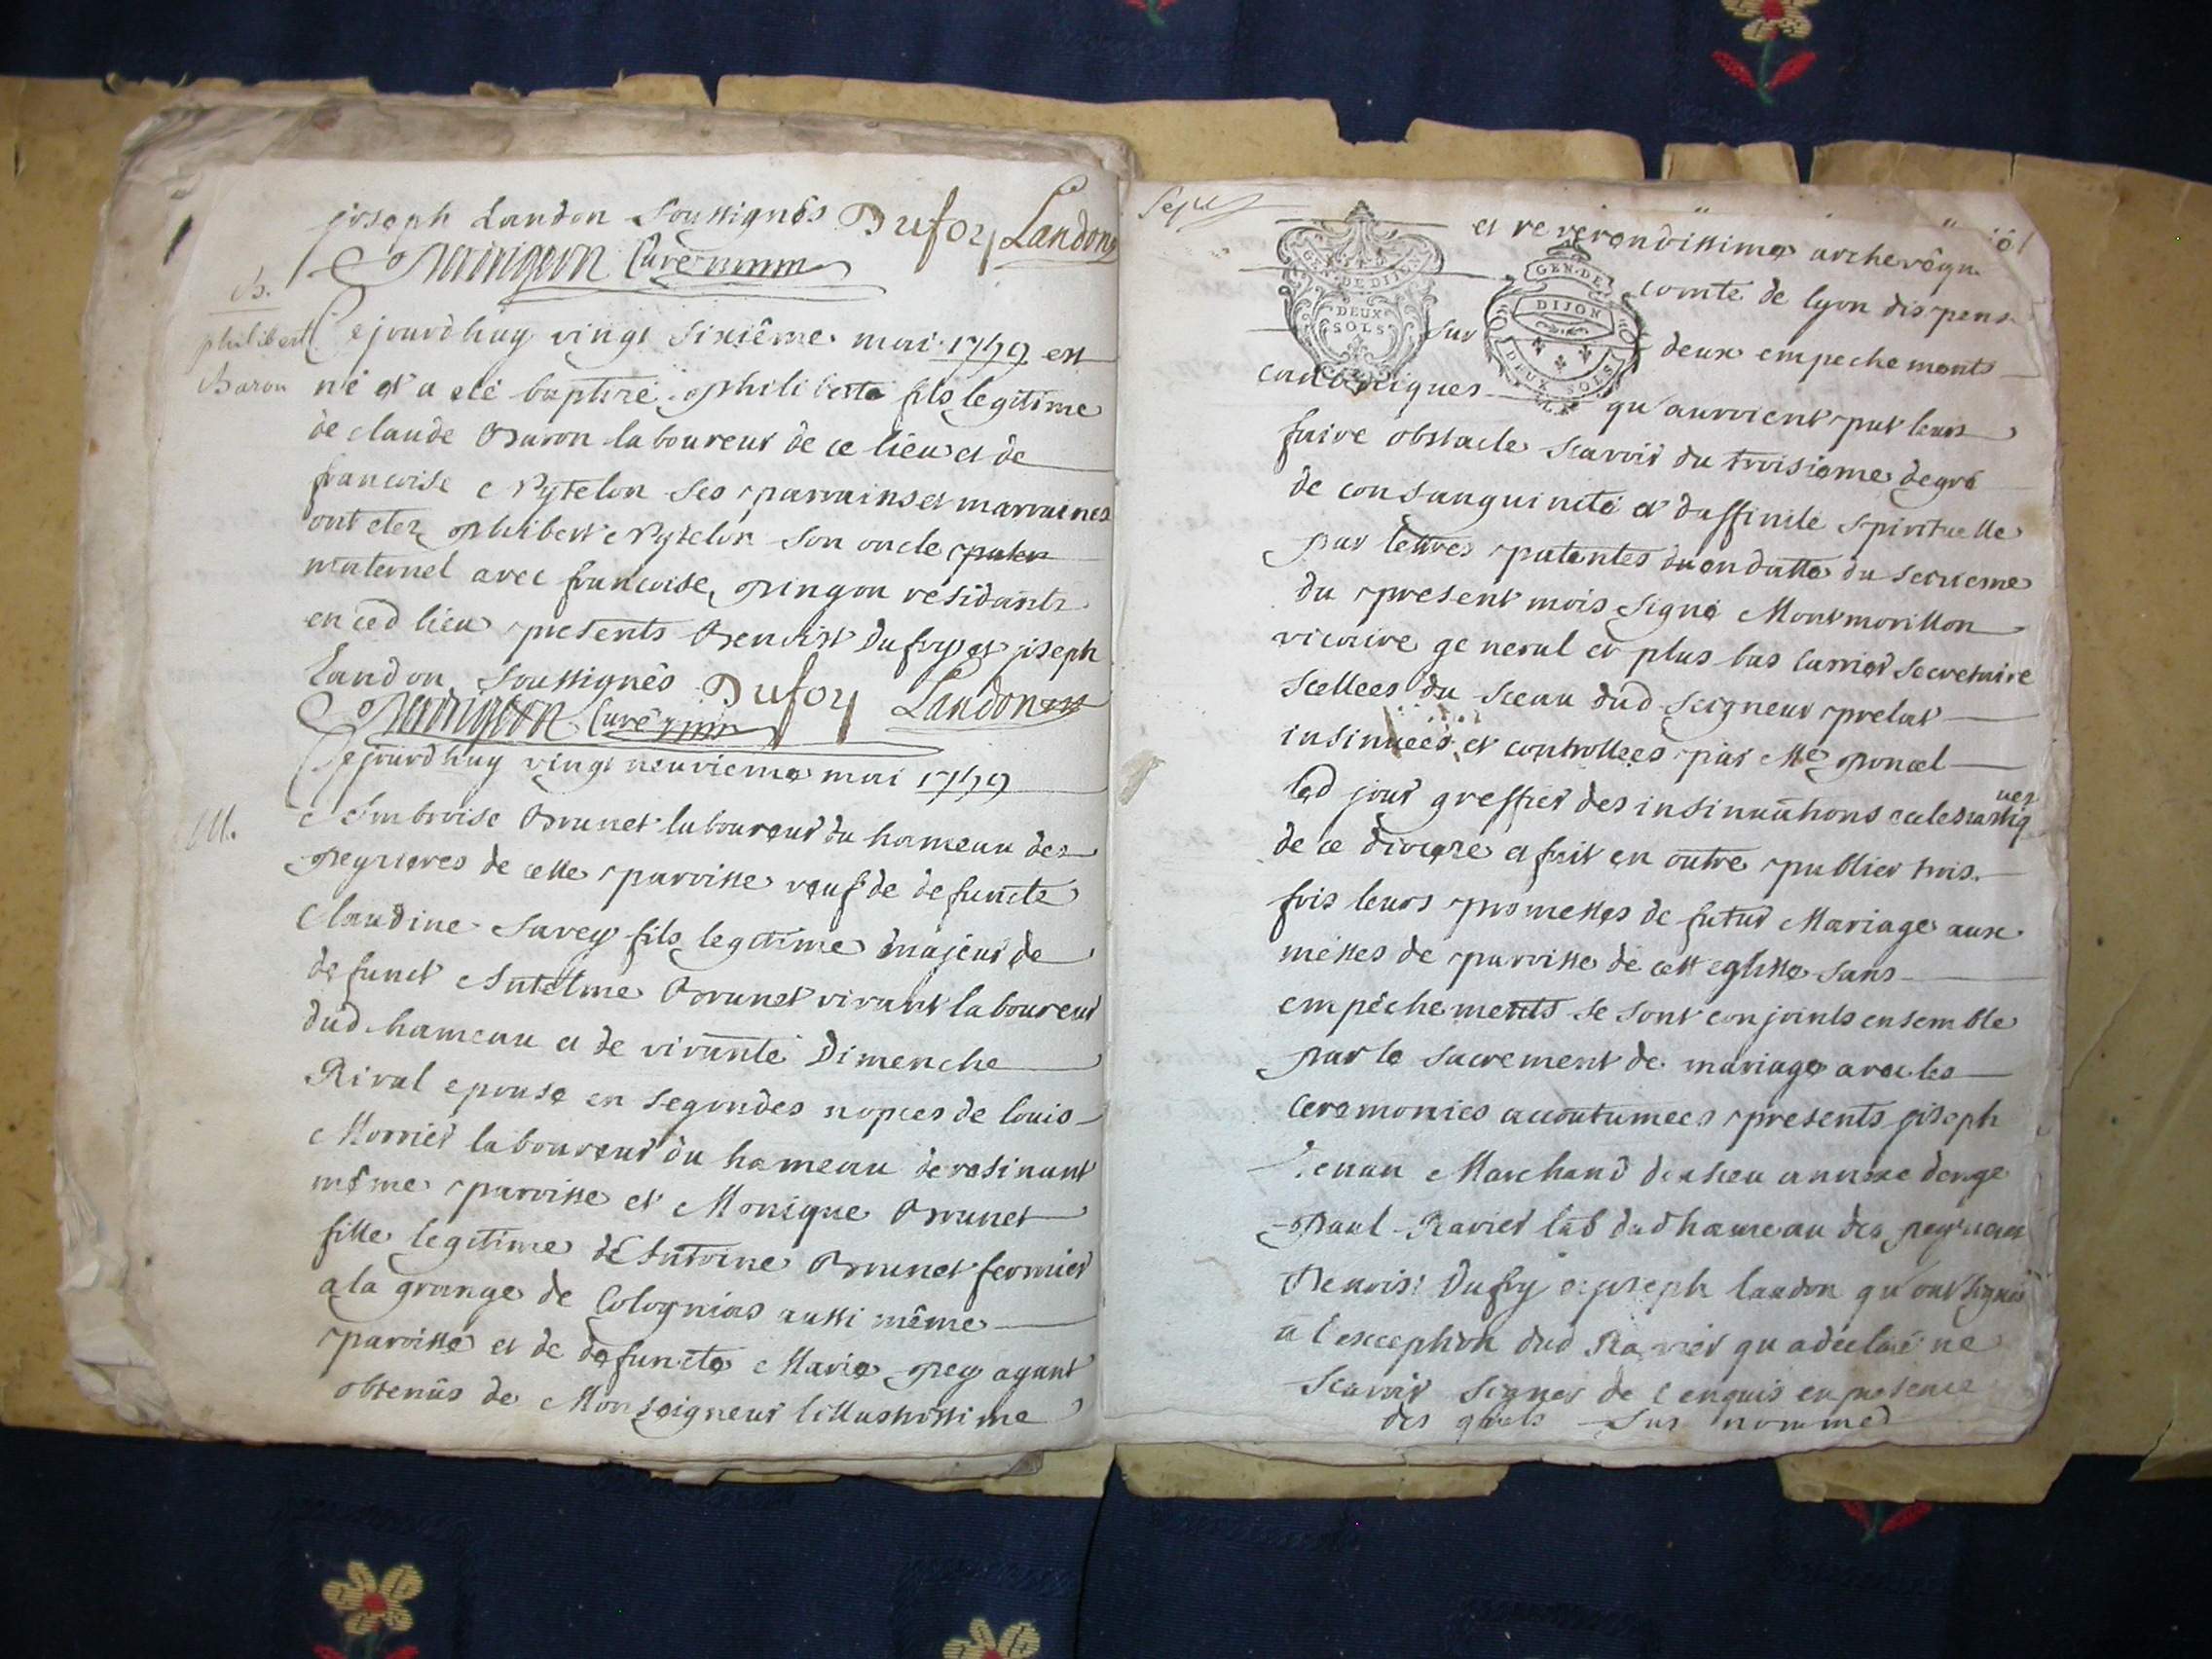 joseph Landon soussignés Dufoy Landon
Curé
B.
philibert
Baron
Cejourdhuy vingt sixiême mai 1749 est
né et a eté baptizé philiberte fils legitime
de claude Baron laboureur de ce lieu et de
francoise Pytelon ses parrains et marraines
ont etez philibert Pytelon son oncle pater
maternel avec francoise pingon residants
en ced lieu presents Benoist Dufoy et joseph
Landon soussignês Dufoy Landon
Curé
Cejourdhuy vingt neuvieme mai 1749
M.
Ambroise Brunet laboureur du hameau des
peyzieres de cette paroisse veuf de defuncte
Claudine Savey fils legitime majeur de
defunct Antelme Brunet vivant laboureur
dud hameau et de vivante Dimenche
Rival epouse en segondes nopces de louis
Morrier laboureur du hameau de rosinant
même paroisse et Monique Brunet
fille legitime d'Antoine Brunet fermier
a la grange de Colognias aussi même
paroisse et de defuncte Marie pey ayant
obtenûs de Monseigneur lillustrissime
et reverendissime archevêque
comte de lyon dispense
GEN. DE DIJON
DEUX SOLS
sur
GEN. DE
DIJON
DEUX SOLS
deux empechements
canoniques qu'auroient put leurs
faire obstacle scavoir du troisieme degré
de consanguinité et d'affinité spirituelle
par lettres patentes en datte du seizieme
du present mois signé Montmorillon
vicaire general et plus bas secretaire
scellees du sceau dud seigneur prelat
insinuées et controllees par Me poncel
led jour greffier des insinuations eclesiastiques
de ce diocoze et fait en outre publier trois
fois leurs promesses de futur Mariage aux
messes de paroisse de cett eglisse sans
empêchements se sont conjoints ensemble
par le sacrement de mariage avec les
ceremonies accoutumees presents joseph
Marchand annexe
paul Ravier lab dud hameau des peyzieres
Benoist Dufoy et joseph landon qu'ont signés
a l'exception dud Ravier qu a declaré ne
scavoir signer de l enquis en presence
des quels sus nommed